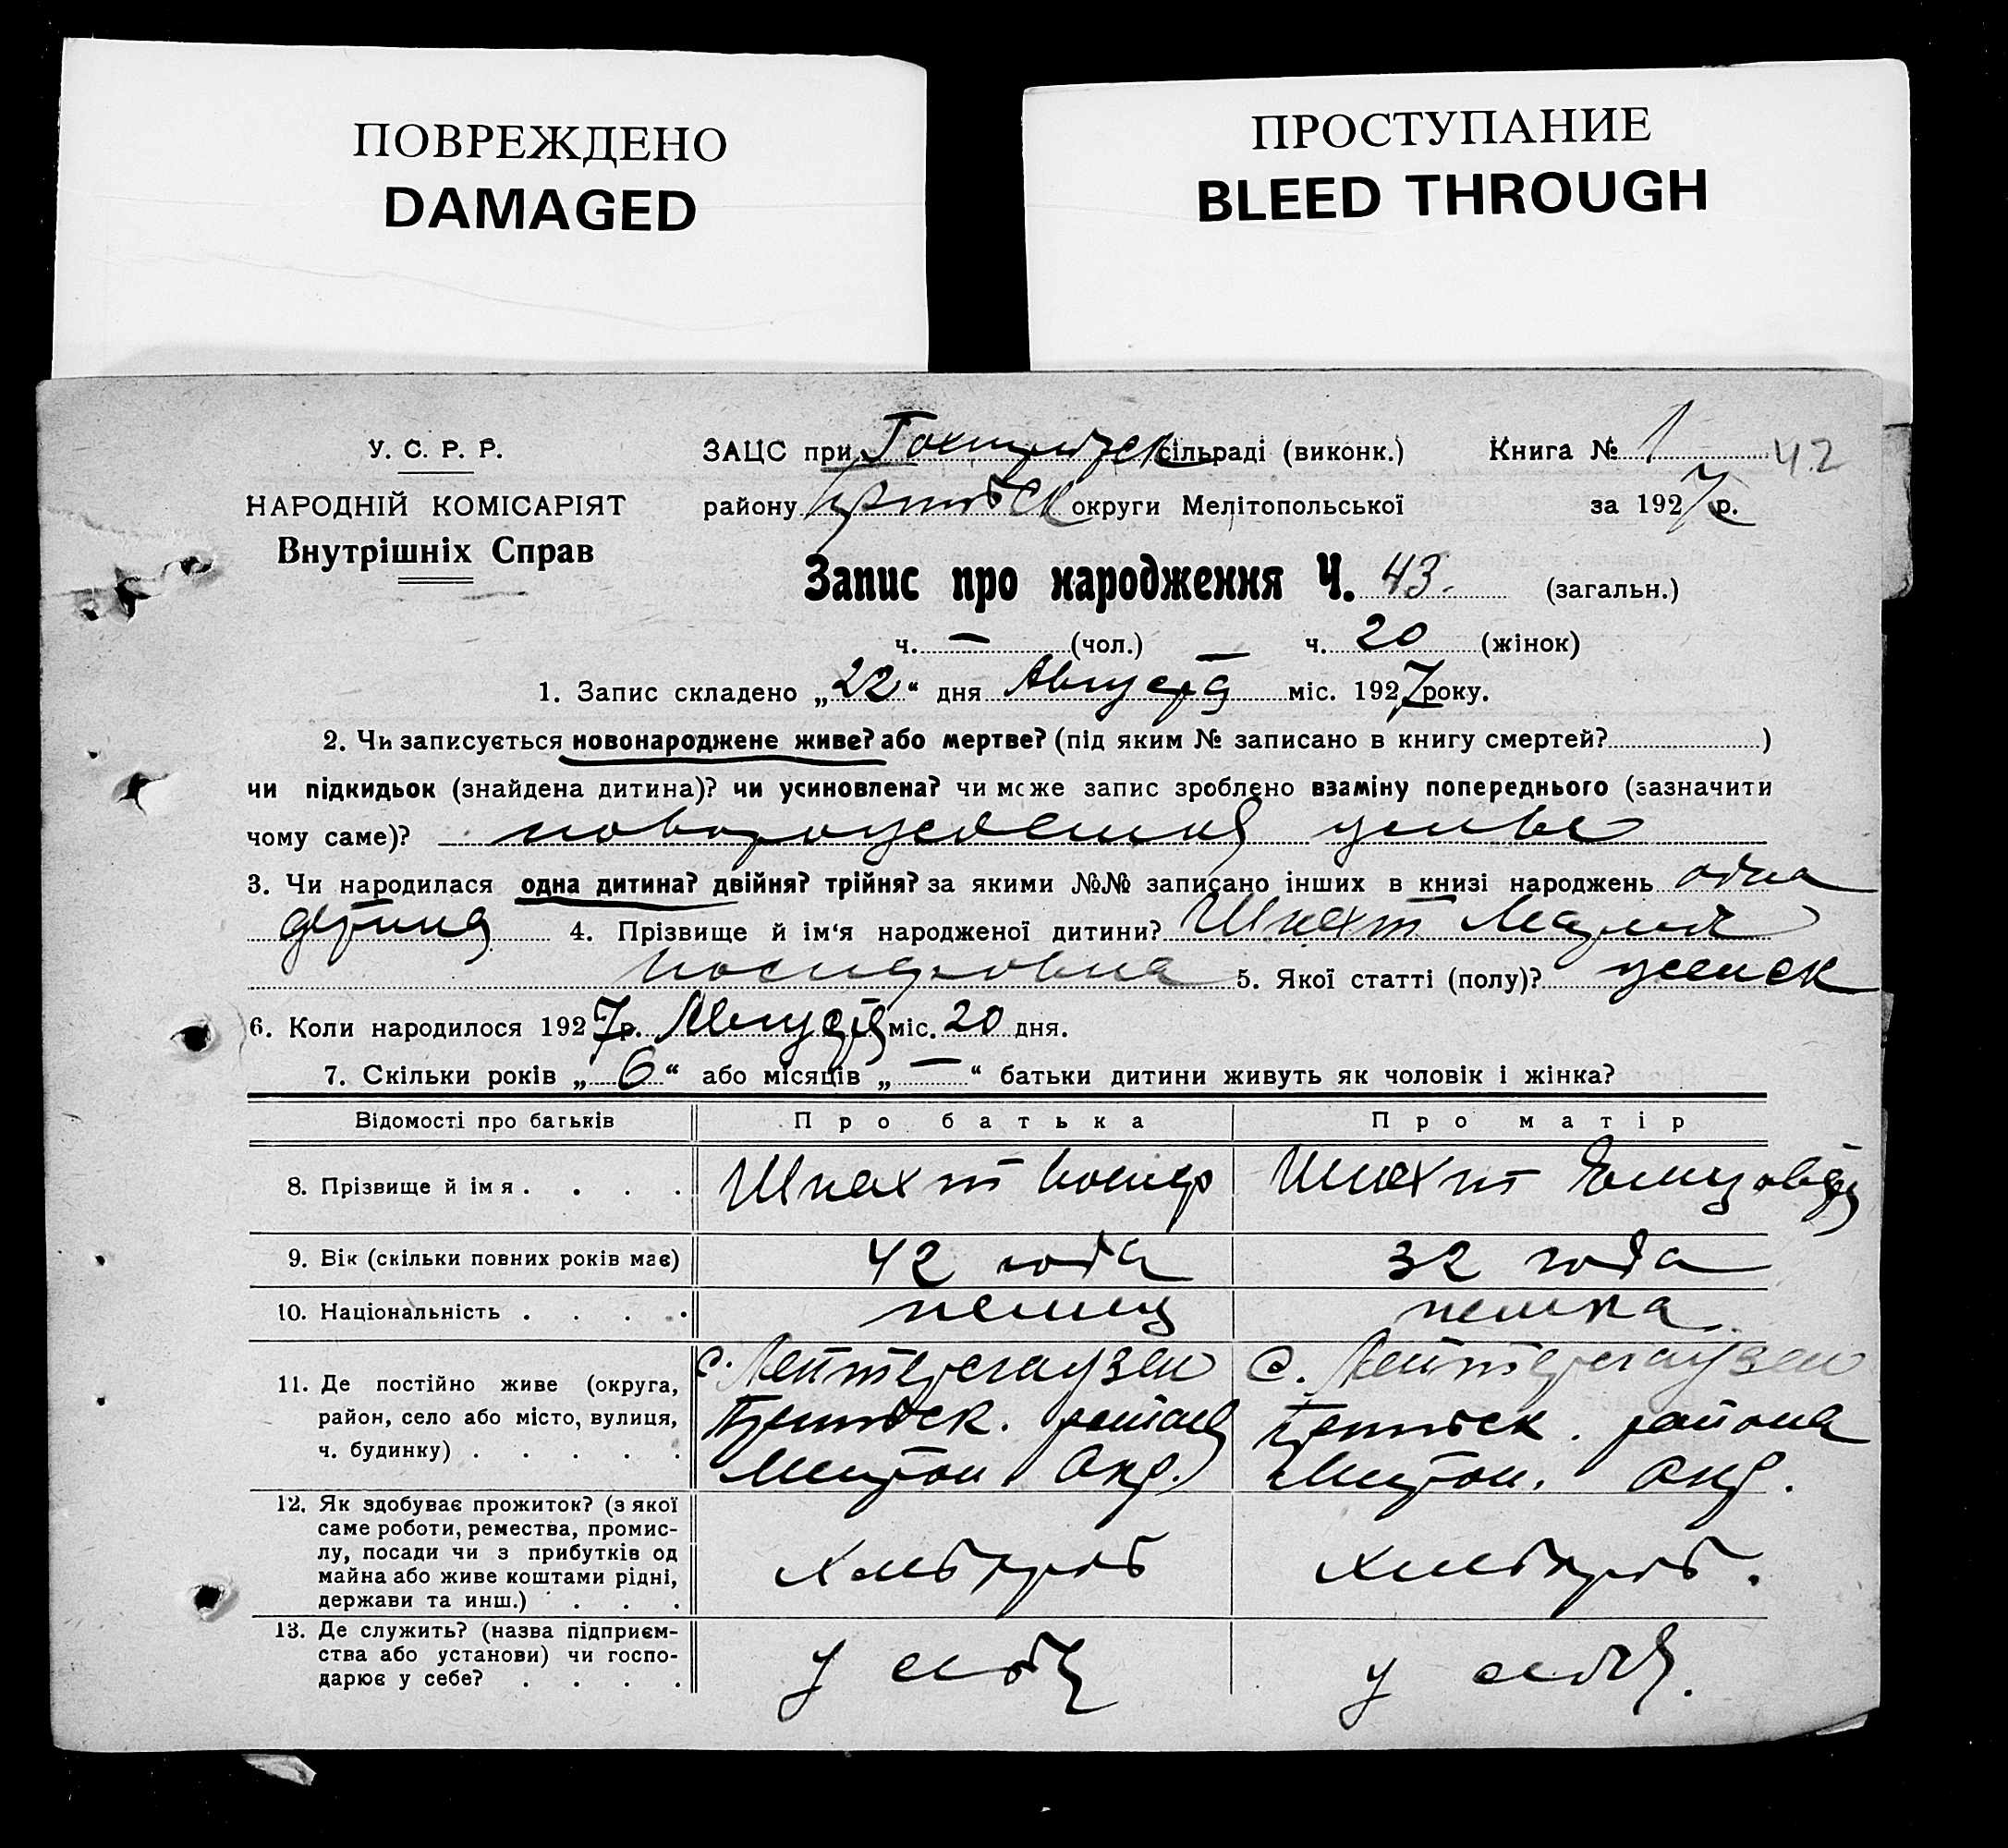 ПОВРЕЖДЕНО
DAMAGED
ПРОСТУПАНИЕ
BLEED THROUGH
У. С. Р. Р.
НАРОДНІЙ КОМІСАРІЯТ
Внутрішніх Справ
ЗАЦС при сільраді (виконк.)
Книга № 1 42
району округи Мелітопольської
за 1927 р.
Запис про народження Ч. 43. (загальн.)
ч. — (чол.) ч. 20 (жінок)
1. Запис складено „22“ дня Августа міс. 1927 року.
2. Чи записується новонароджене живе? або мертве? (під яким № записано в книгу смертей? )
чи підкидьок (знайдена дитина)? чи усиновлена? чи може запис зроблено взаміну попереднього (зазначити
чому саме)?
3. Чи народилася одна дитина? двійня? трійня? за якими №№ записано інших в книзі народжень одна
дитина 4. Прізвище й ім‘я народженої дитини? Шпехт
5. Якої статті (полу)? женск
6. Коли народилося 1927 р. Августа міс. 20 дня.
7. Скільки років „6“ або місяців „—“ батьки дитини живуть як чоловік і жінка?
Відомості про батьків
Про батька
Про матір
8. Прізвище й імя
Шпехт
Шпехт
9. Вік (скільки повних років має)
42 года
32 года
10. Національність
немец
немка
11. Де постійно живе (округа,
район, село або місто, вулиця,
ч. будинку)
с. Лейтерсгаузен
района
Окр.
с. Лейтерсгаузен
района
Окр.
12. Як здобуває прожиток? (з якої
саме роботи, ремества, промис-
лу, посади чи з прибутків од
майна або живе коштами рідні,
держави та инш.)
хлебороб
хлебороб.
13. Де служить? (назва підприєм-
ства або установи) чи госпо-
дарює у себе?
у себя
у себя.